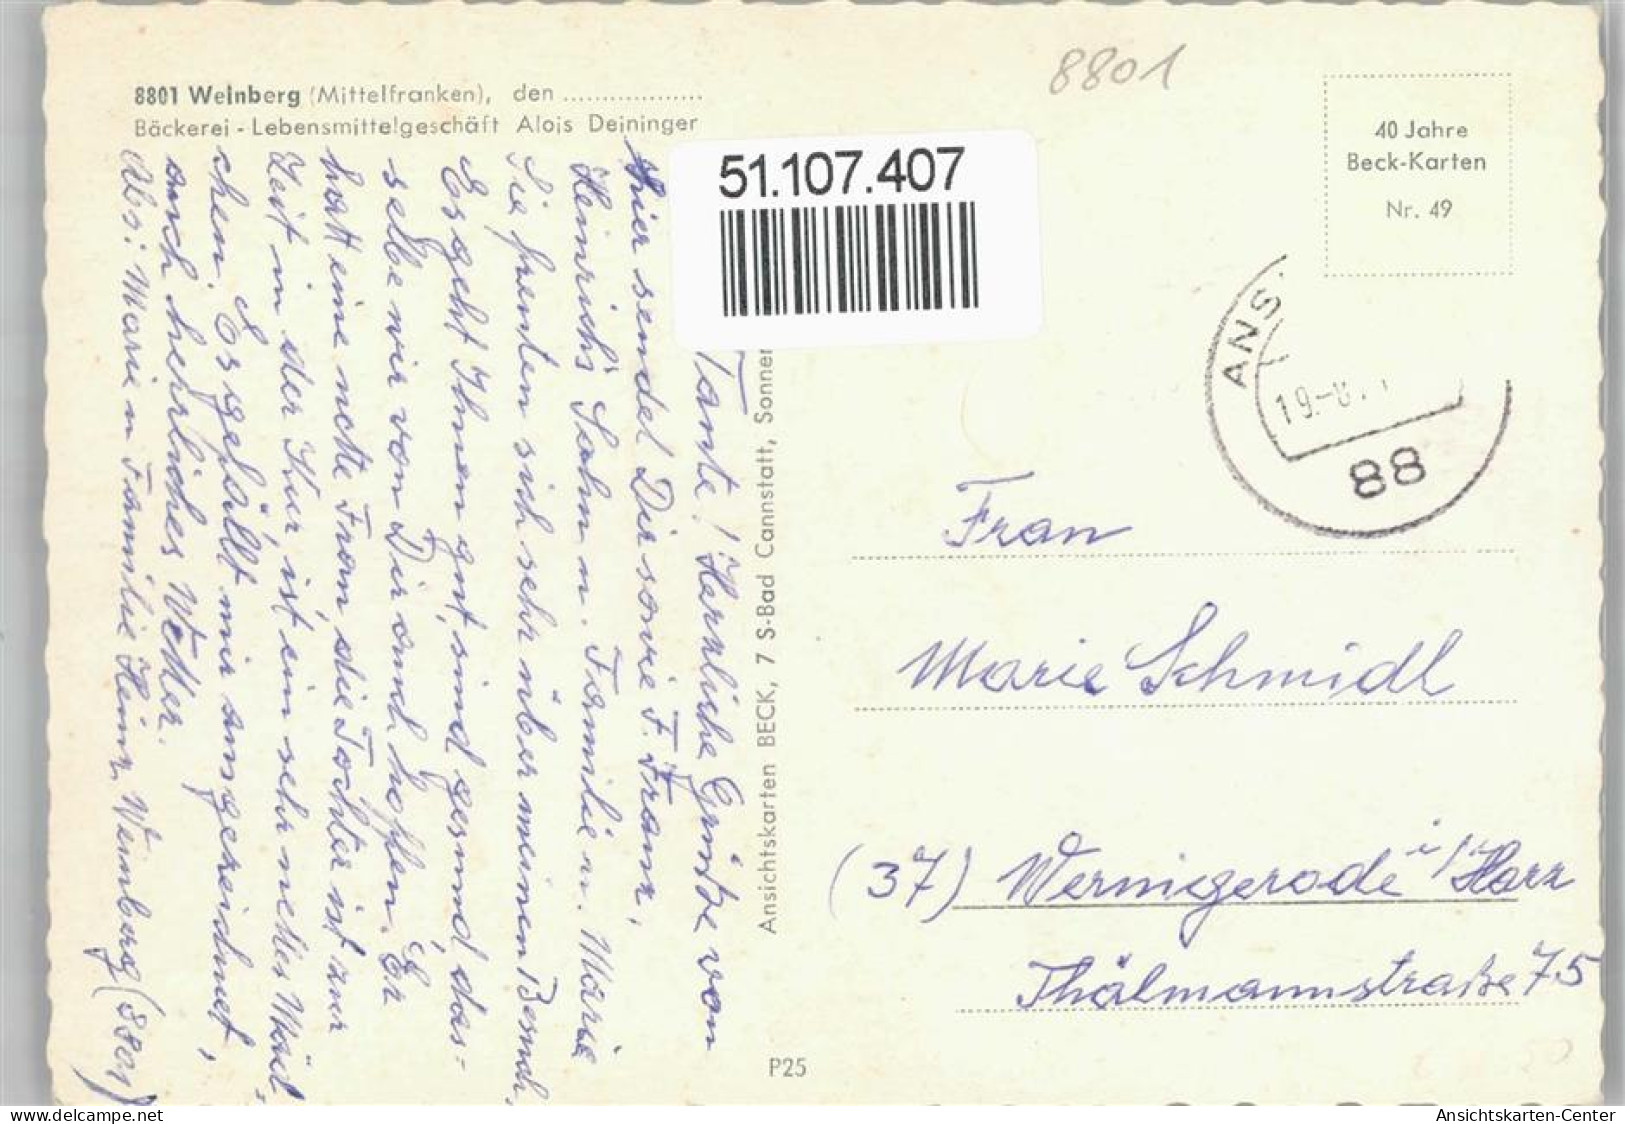 8801 Weinberg (Mittelfranken), den ..................
Bäckerei - Lebensmittelgeschäft Alois Deininger
8801
40 Jahre
Beck-Karten
Nr. 49
51.107.407
ANS
19.-8.
88
Tante! Herzliche Grüße von
hier sendet Dir sowie F. Franz,
Heinrich's Sohn u. Familie u. Marie
Sie freuten sich sehr über meinen Besuch,
Es geht Ihnen gut, sind gesund, das-
selbe wir von Dir auch hoffen. Er
hatt eine nette Frau, die Tochter ist zur
Zeit in der Kur, ist ein sehr nettes Mäd-
chen. Es gefällt mir ausgezeichnet,
auch herrliches Wetter.
Abs: Marie u Familie Heinz Weinberg (8801)
Ansichtskarten BECK, 7 S-Bad Cannstatt, Sonnen
P25
Frau
Marie Schmidt
(37) Wernigerode i/Harz
Thälmannstraße 75
Ansichtskarten-Center.de
Ansichtskarten-Center